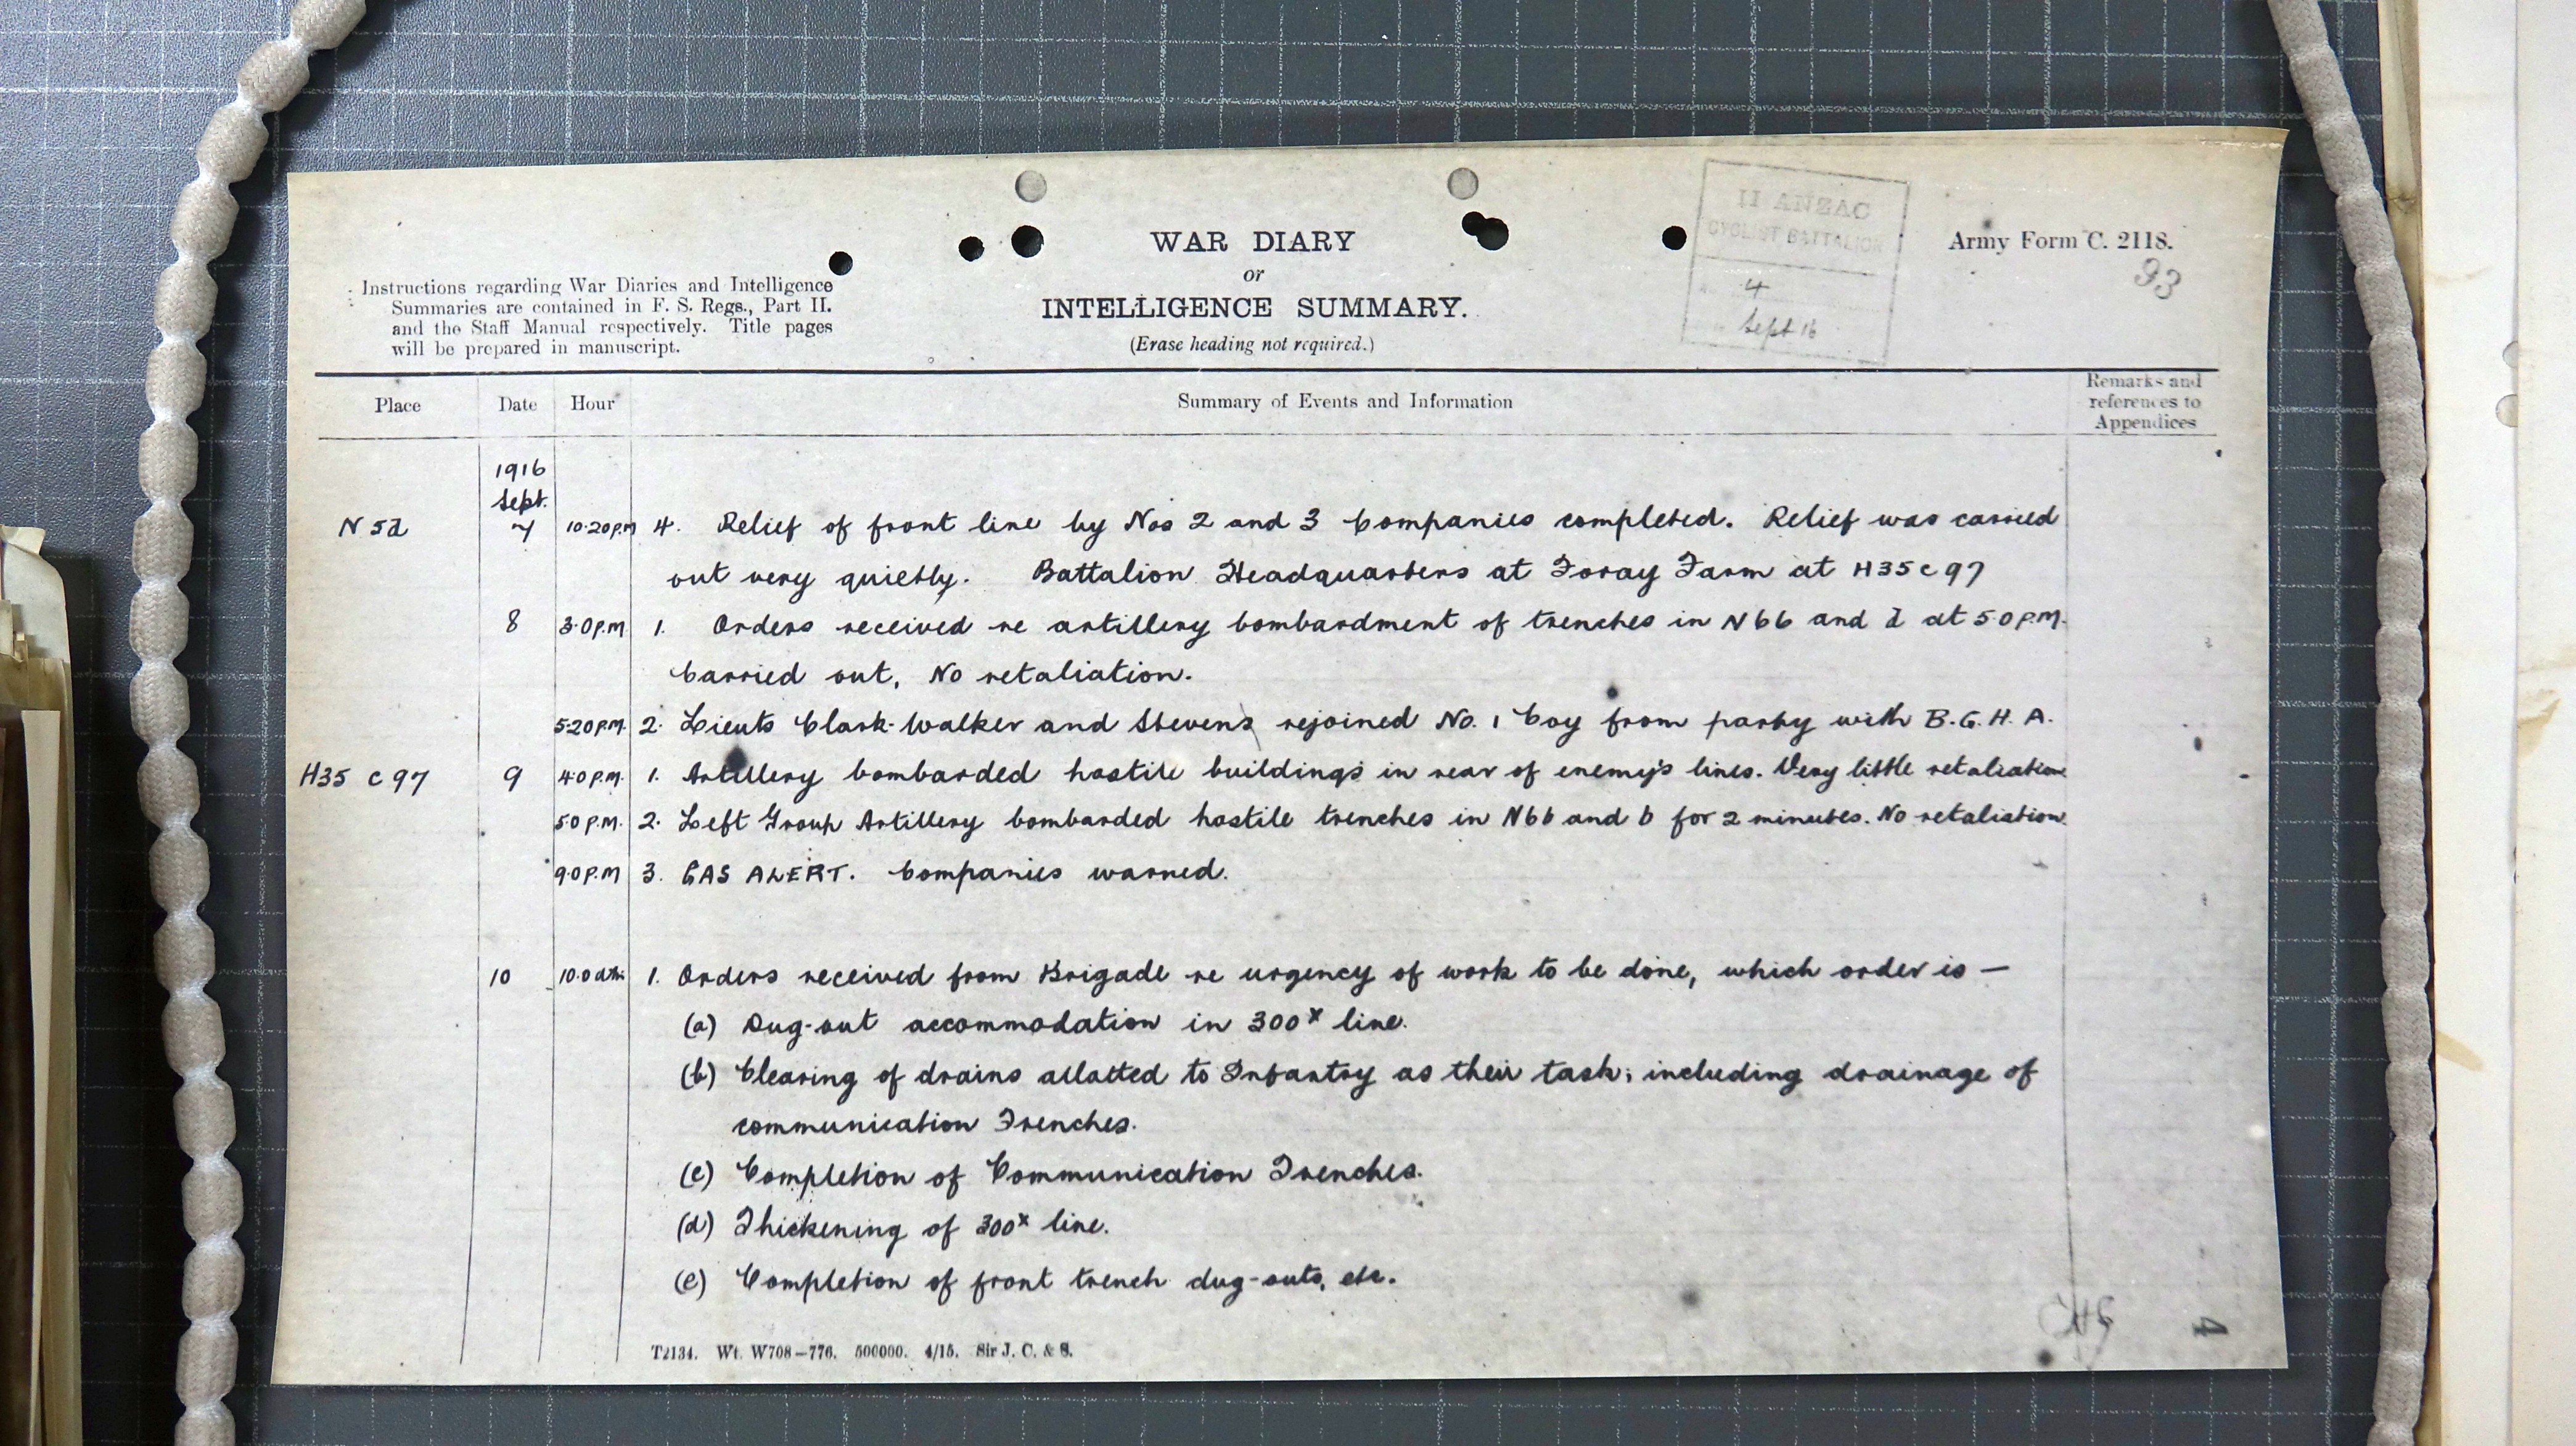 II ANZAC
CYCLIST BATTALION
4
Sept 16
Army Form C. 2118.
93
WAR DIARY
or
INTELLIGENCE SUMMARY.
(Erase heading not required.)
Instructions regarding War Diaries and Intelligence
Summaries are contained in F. S. Regs., Part II.
and the Staff Manual respectively. Title pages
will be prepared in manuscript.
Place Date Hour Summary of Events and Information Remarks and
references to
Appendices
1916
Sept.
N 5d 7 10.20 P.M 4. Relief of front line by Nos 2 and 3 Companies completed. Relief was carried
out very quietly. Battalion Headquarters at Foray Farm at H35 c 97
8 3.0 P.M 1. Orders received re artillery bombardment of trenches in N6b and d at 5.0 P.M.
Carried out, No retaliation.
5.20 P.M. 2. Lieuts Clark-Walker and Stevens rejoined No. 1 Coy from party with B.G.H.A.
H35 c 97 9 4.0 P.M. 1. Artillery bombarded hostile buildings in rear of enemy's lines. Very little retaliation
5.0 P.M. 2. Left Group Artillery bombarded hostile trenches in N6b and b for 2 minutes. No retaliation.
9.0 P.M 3. GAS ALERT. Companies warned.
10 10.0 a.m. 1. Orders received from Brigade re urgency of work to be done, which order is —
(a) Dug-out accommodation in 300ˣ line.
(b) Clearing of drains allotted to Infantry as their task; including drainage of
communication Trenches.
(c) Completion of Communication Trenches.
(d) Thickening of 300ˣ line.
(e) Completion of front trench dug-outs, etc.
T2134. Wt. W708—776. 500000. 4/15. Sir J. C. & S.
4